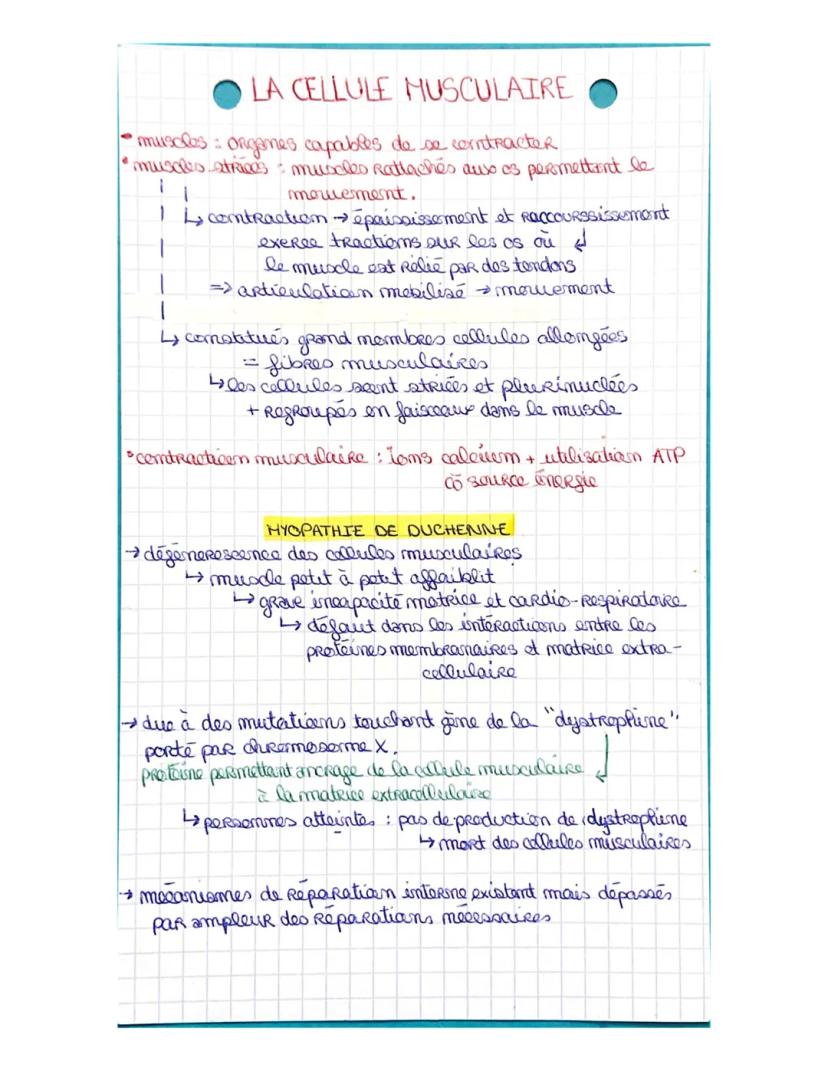 LA CELLULE MUSCULAIRE
• muscles : organes capables de se contracter
• muscles striées : muscles rattachés aux os permettant le
mouvement.
↳ contraction → épaississement et raccourssissement
exerce tractions sur les os où
le muscle est relié par des tendons
=> articulation mobilisé → mouvement
↳ constitués grand nombres cellules allongées
= fibres musculaires
↳ les cellules sont striées et plurinuclées
+ regroupés en faisceaux dans le muscle
• contraction musculaire : ions calcium + utilisation ATP
cō source énergie
MYOPATHIE DE DUCHENNE
→ dégénerescence des cellules musculaires
↳ muscle petit à petit affaiblit
↳ grave incapacité motrice et cardio-respiratoire
↳ défaut dans les intéractions entre les
protéines membranaires et matrice extra-
cellulaire
→ due à des mutations touchant gène de la "dystrophine"
porté par chromosome X.
protéine permettant ancrage de la cellule musculaire
à la matrice extracellulaire
↳ personnes atteintes : pas de production de dystrophine
↳ mort des cellules musculaires
→ mécanismes de réparation interne existant mais dépassés
par ampleur des réparations nécessaires